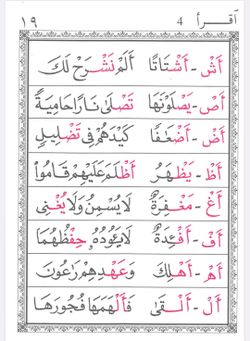 اقرأ 4 ١٩
أَشْ - أَشْتَاتًا أَلَمْ نَشْرَحْ لَكَ
أَصْ - يَصْلَوْنَهَا تَصْلَىٰ نَارًا حَامِيَةً
أَضْ - أَضْعَٰفًا كَيْدَهُمْ فِي تَضْلِيلٍ
أَظْ - يَظْهَرُ أَظْلَمَ عَلَيْهِمْ قَامُوا۟
أَغْ - مَغْفِرَةٌ لَا يُسْمِنُ وَلَا يُغْنِى
أَفْ - أَفْـِٔدَةٌ لَا يَـُٔودُهُۥ حِفْظُهُمَا
أَهْ - أَهْلِكَ وَعَهْدِهِمْ رَٰعُونَ
أَلْ - أَلْقَىٰ فَأَلْهَمَهَا فُجُورَهَا